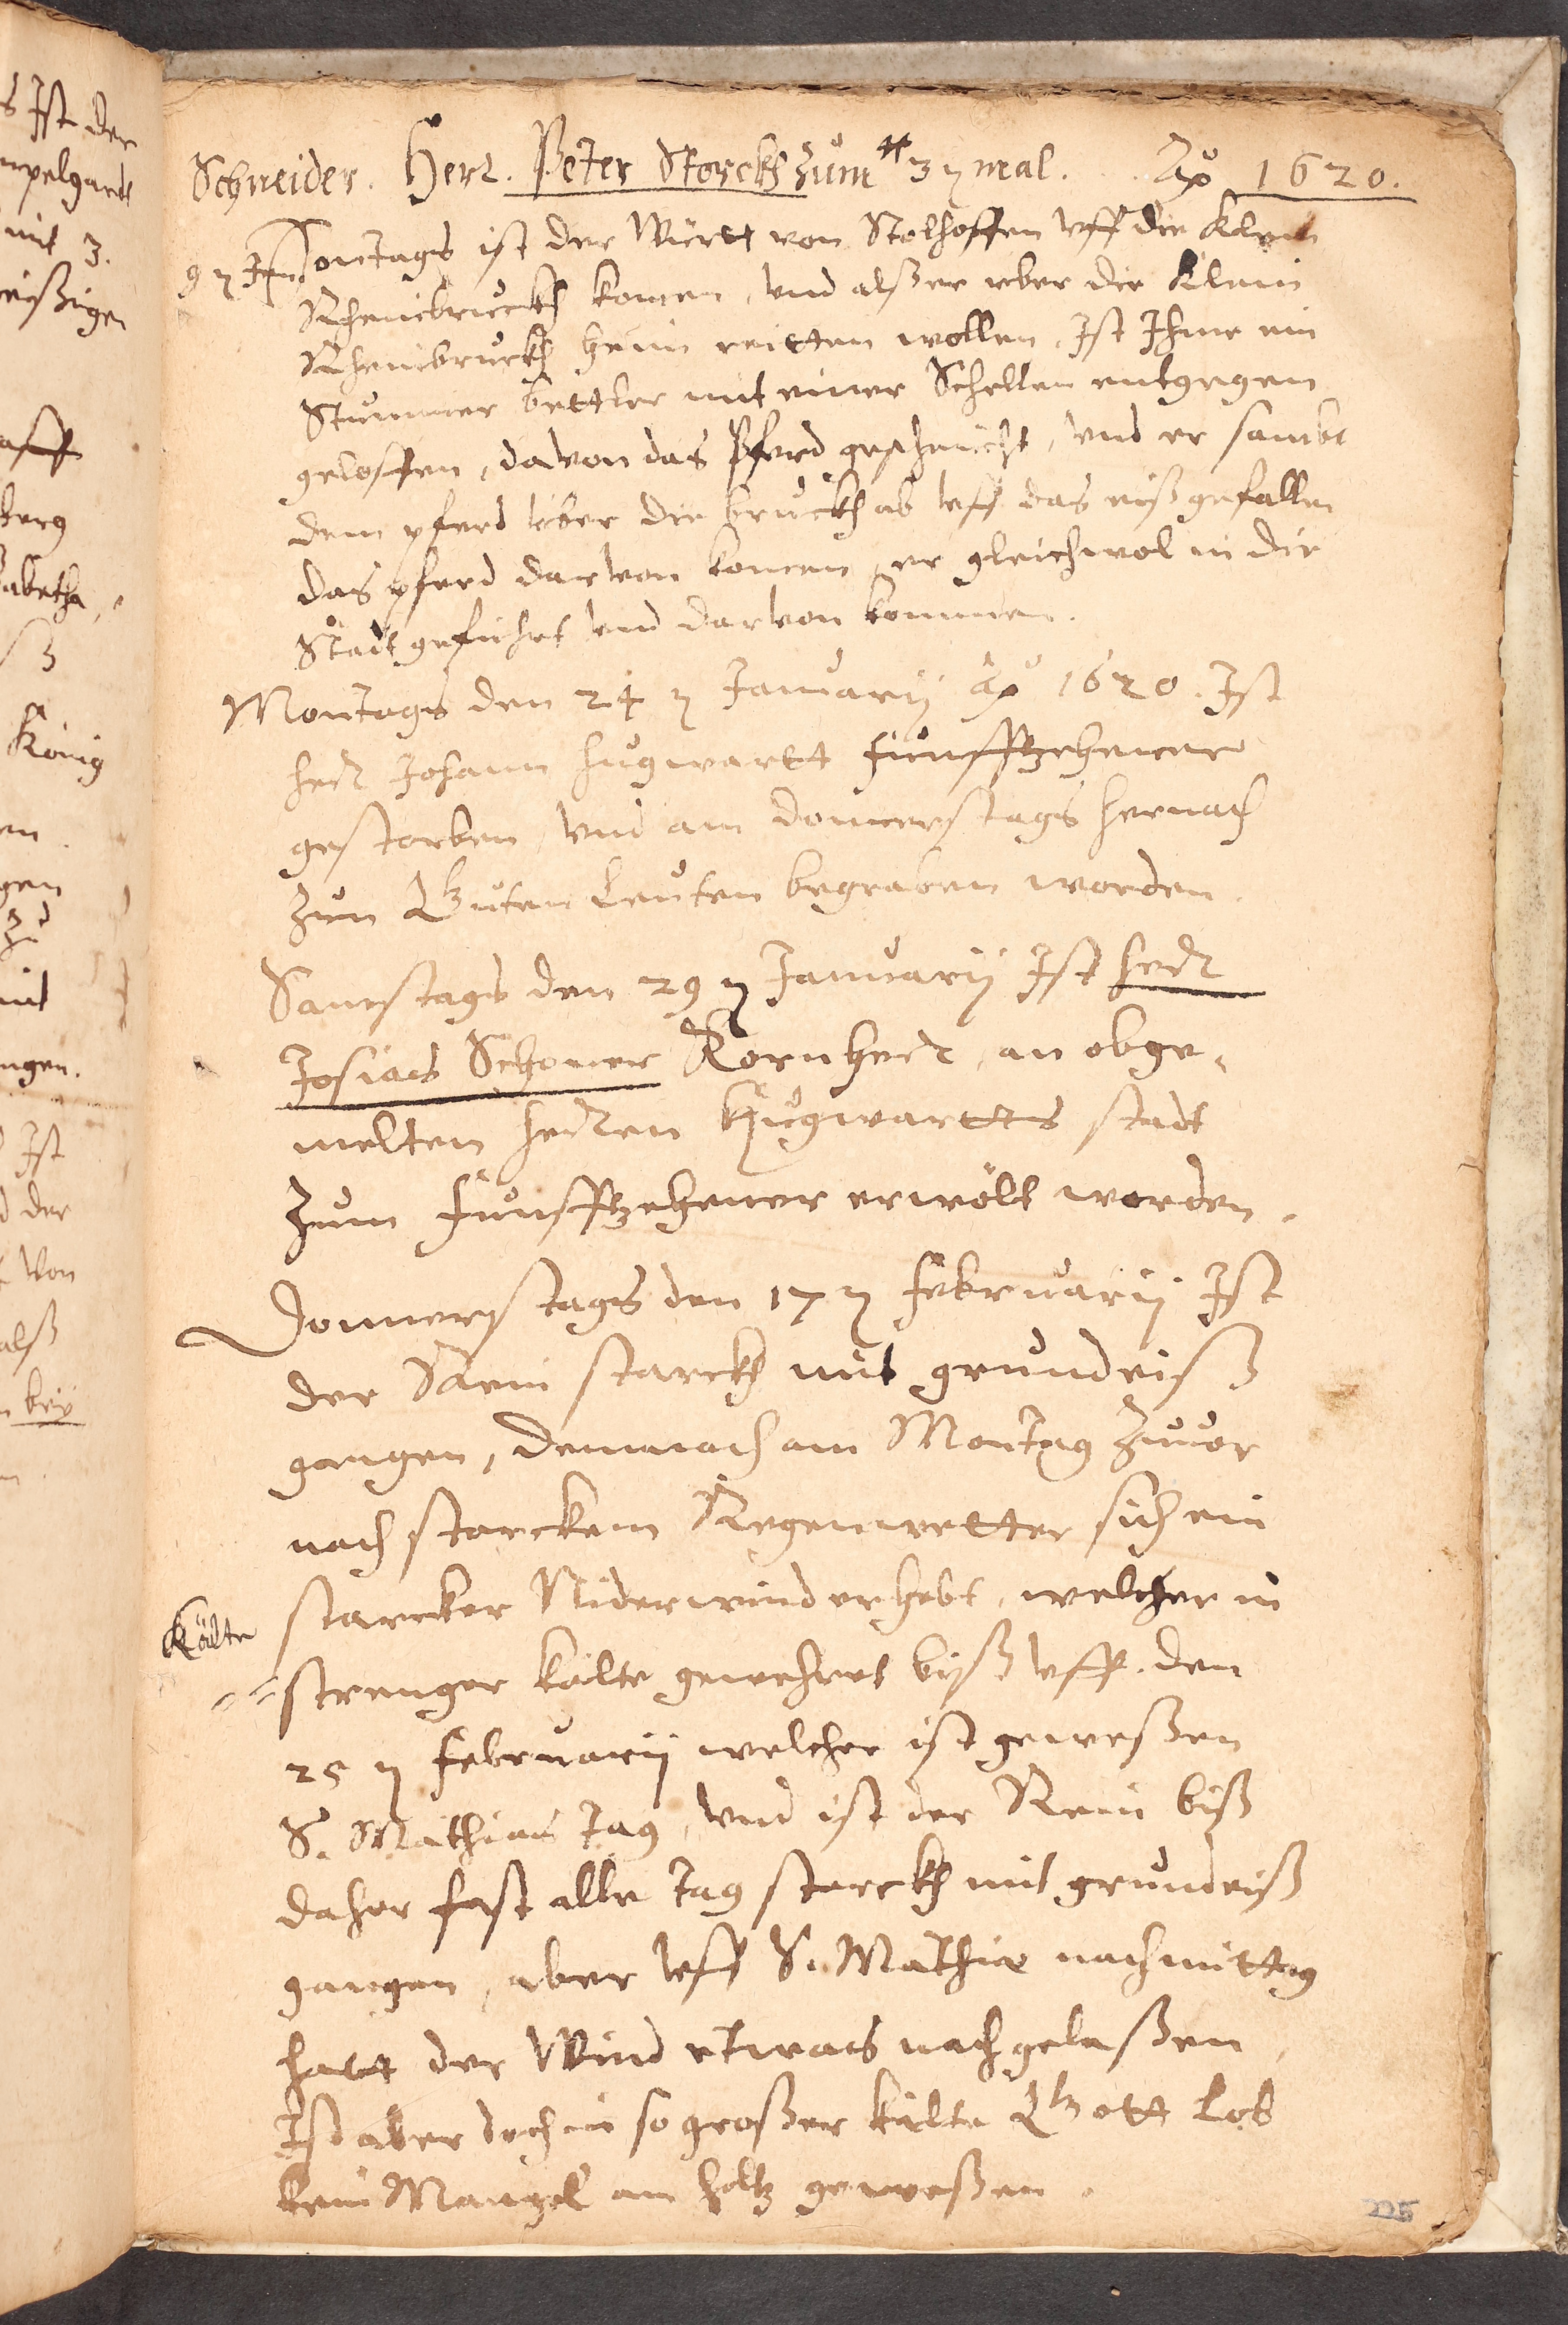 Schneider. Herr. Peter Storckh zum 3ten mal. Ao 1620.
9ten Jan. Sontags ist der Württ von Stolhoffen vff die Klein
Rheinbruckh komen, vnd alß er veber die Klein
Rheinbruckh hein reitten wollen, Ist Ihme ein
Stummer bettler mit einer Schellen entgegen
geloffen, davon das Pferd gescheücht, vnd er sambt
dem pferd über die bruckh ab vff das eiß gefallen
das pferd darvon komen, er gleichwol in die
Stadt gefuhrt vnd darvon kommen.
Montags den 24ten Januarij Ao 1620. Ist
herr Johann Hugwartt funffzehener
gestorben, vnd am donnerstags hernach
zun Guten Leuten begraben worden.
Samstags den 29ten Januarij Ist herr
Josias Schoner Kornherr, an obge-
melten herren Hugwartts stadt
zum funffzehener erwölt worden.
Donnerstags den 17ten Februarij Ist
der Rein starckh mit grundeiß
gangen, demnach am Montag zuuor
nach starckem Regenwetter sich ein
starcker Niderwind erhebt, welcher in
Kälte
strenger kälte gewehret biß vff den
25ten Februarij welcher ist geweßen
S. Mathias tag, vnd ist der Rein biß
daher fast alle tag starckh mit grundeiß
gangen, aber vff S. Mathiæ nachmittag
hatt der Wind etwas nachgelaßen,
Ist aber doch in so großer kälte Gott Lob
kein Mangel an holtz geweßen.
225
s Ist der
mpelgardt
mit 3.
eißigen
berg
sabetha,
3
König
en.
gen
zu
mit
ngen.
Ist
d der
von
alß
bey